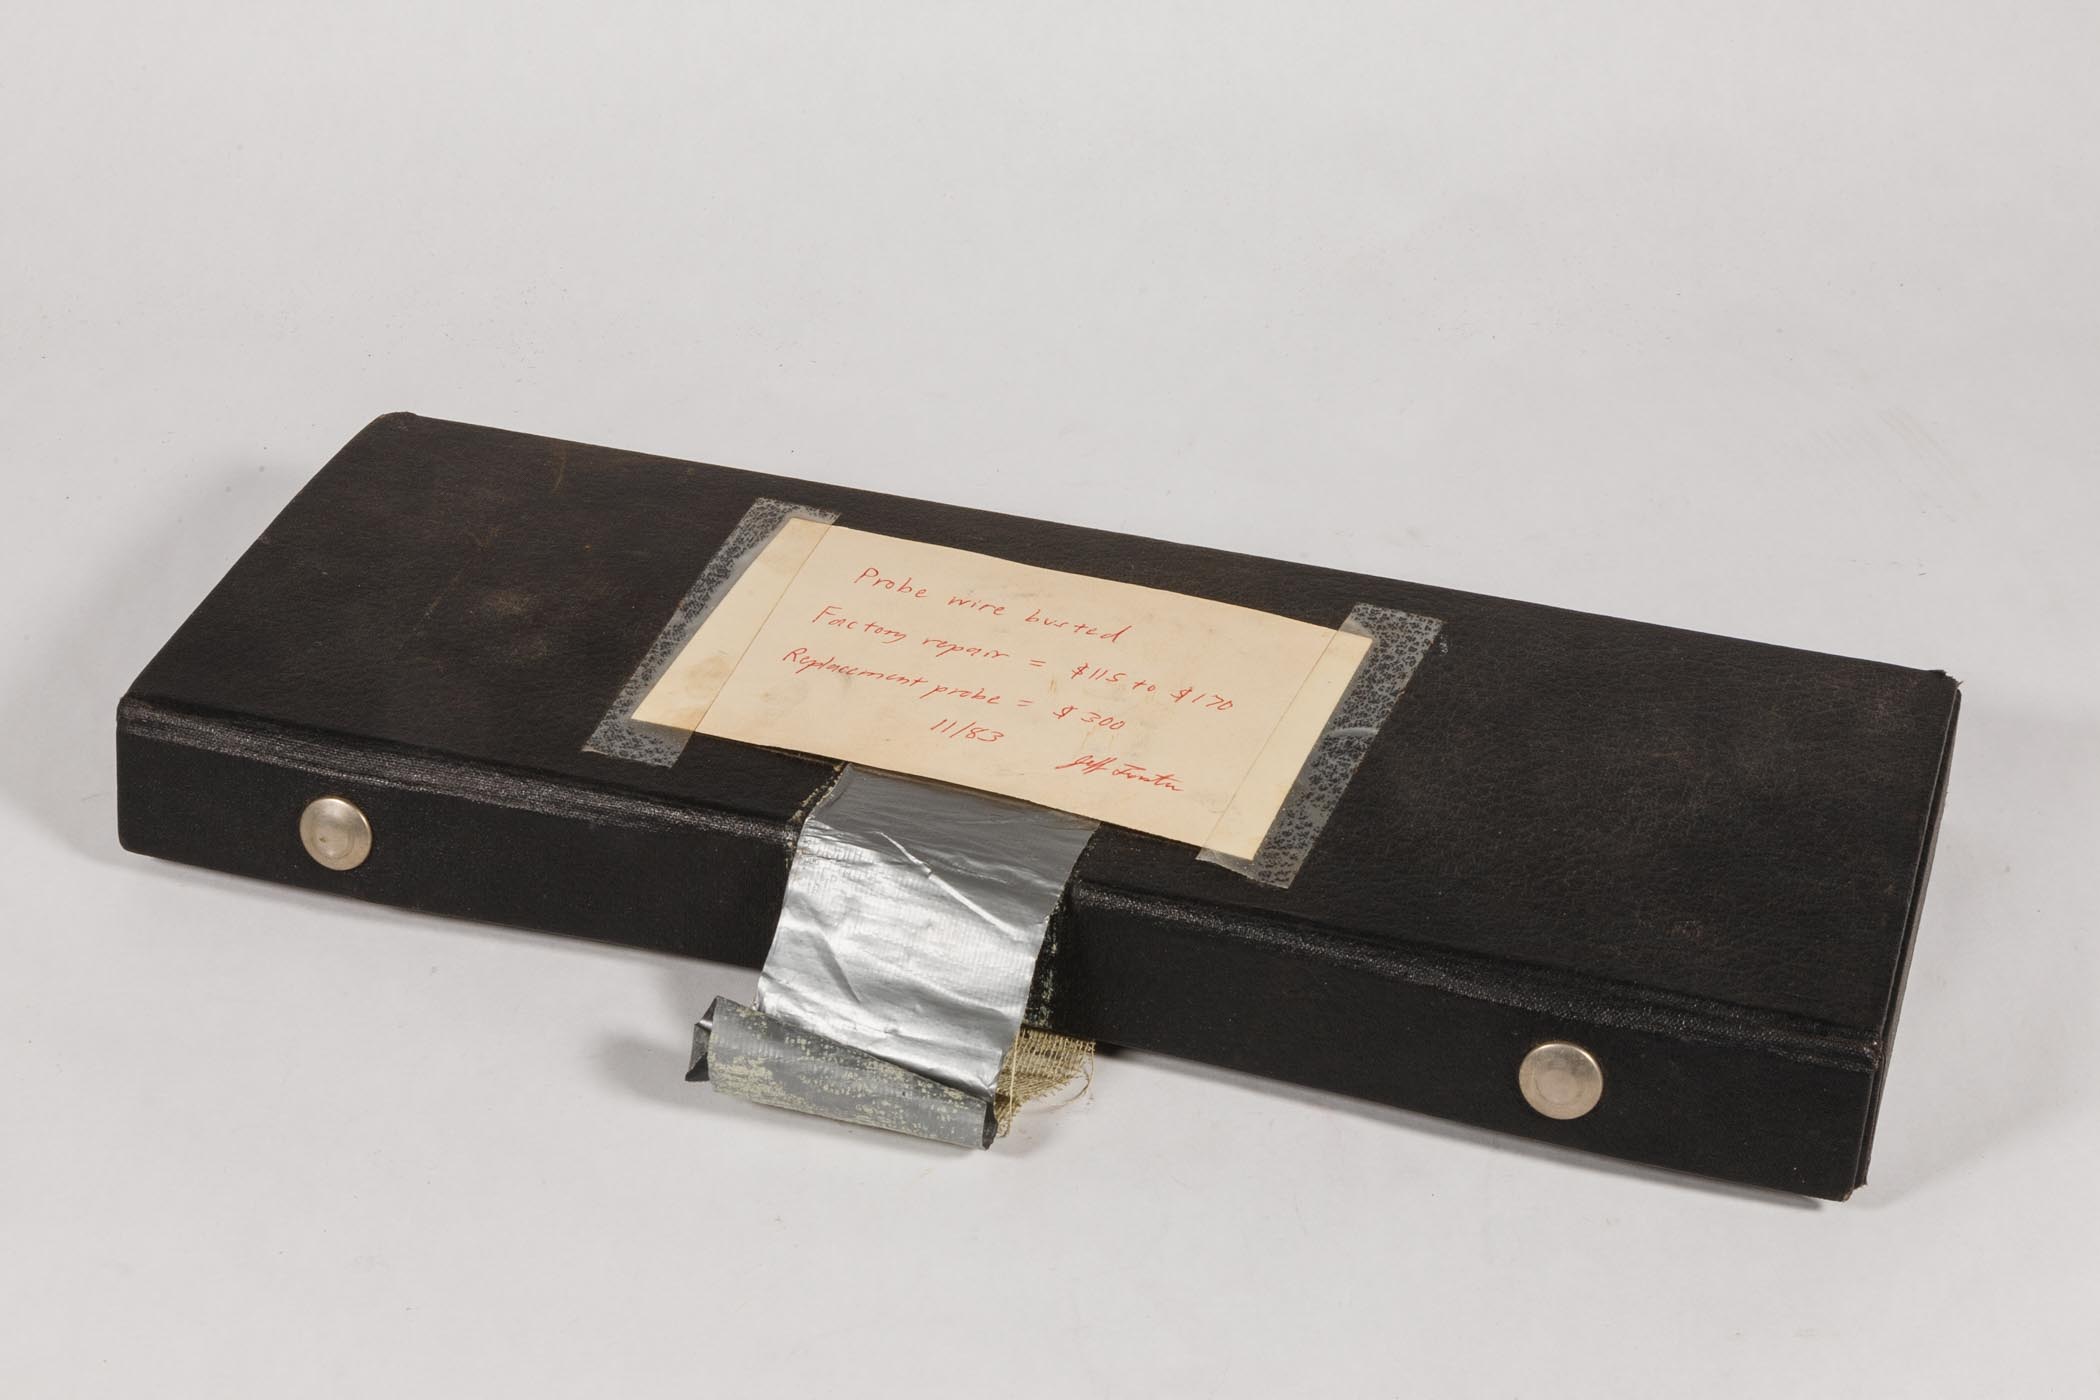 Probe wire busted
Factory repair = $115 to $170
Replacement probe = $300
11/83
Jeff